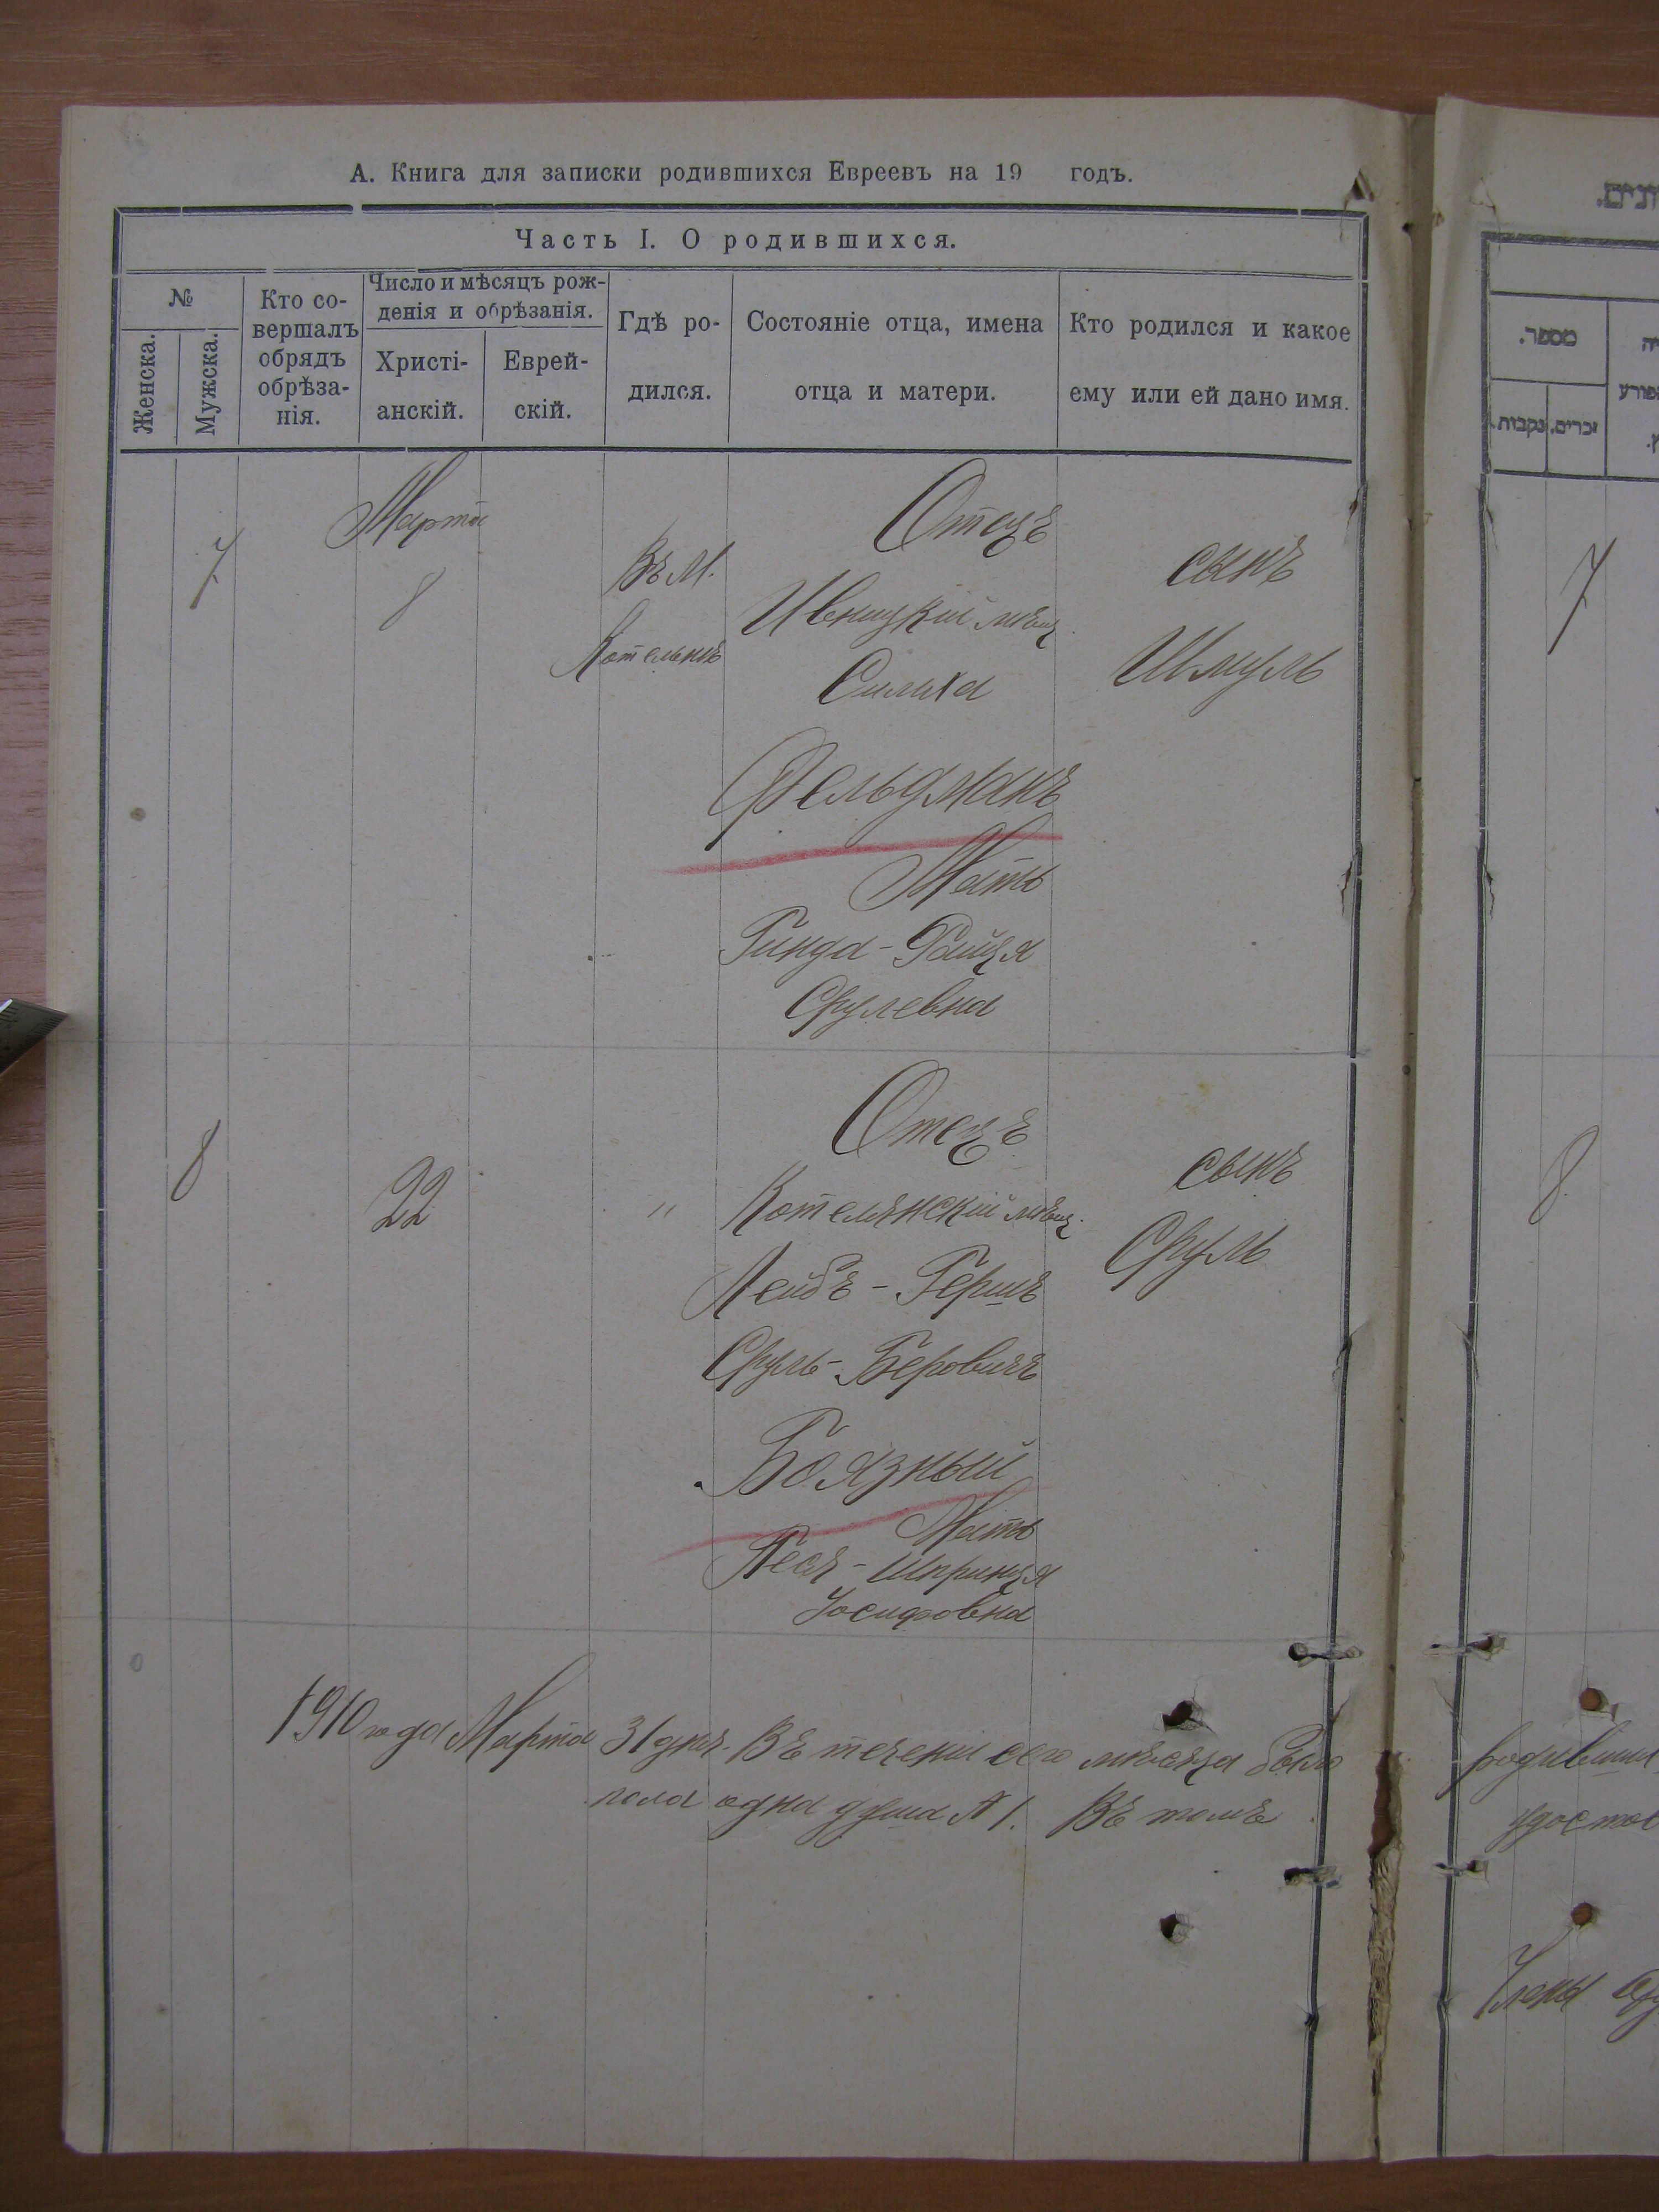 А. Книга для записки родившихся Евреевъ на 19 годъ.
Часть I. О родившихся.
№
Женска.
Мужска.
Кто со-
вершалъ
обрядъ
обрѣза-
нія.
Число и мѣсяцъ рож-
денія и обрѣзанія.
Христі-
анскій.
Еврей-
скій.
Гдѣ ро-
дился.
Состояніе отца, имена
отца и матери.
Кто родился и какое
ему или ей дано имя.
7
Марта
8
Въ М.
Котельнѣ
Отецъ
Ивницкій мѣщ.
Симха
Фельдманъ
Мать
Гинда-Файця
Срулевна
сынъ
Шмуль
8
22
"
Отецъ
Котелянскій мѣщ.
Лейбъ-Гершъ
Сруль-Беровичъ
Боязный
Мать
Песя-Шпринця
Іосифовна
сынъ
Сруль
1910 года Марта 31 дня. Въ теченіи сего мѣсяца было
пола одна душа № 1. Въ томъ
מספר.
זכרים.
נקבות.
7
8
родивши
удостов
Члены